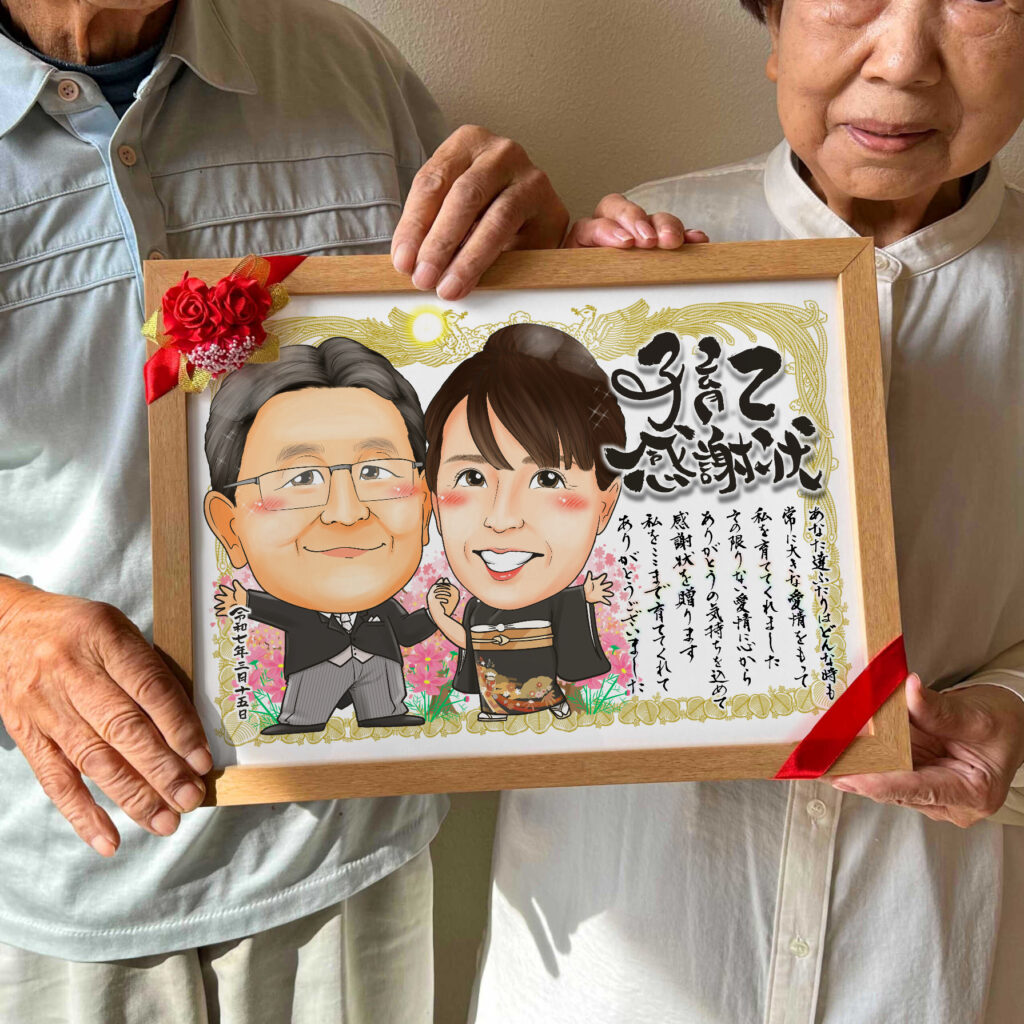 子育て
感謝状
あなた達ふたりはどんな時も
常に大きな愛情をもって
私を育ててくれました
その限りない愛情に心から
ありがとうの気持ちを込めて
感謝状を贈ります
私をここまで育ててくれて
ありがとうございました
令和七年二月十五日